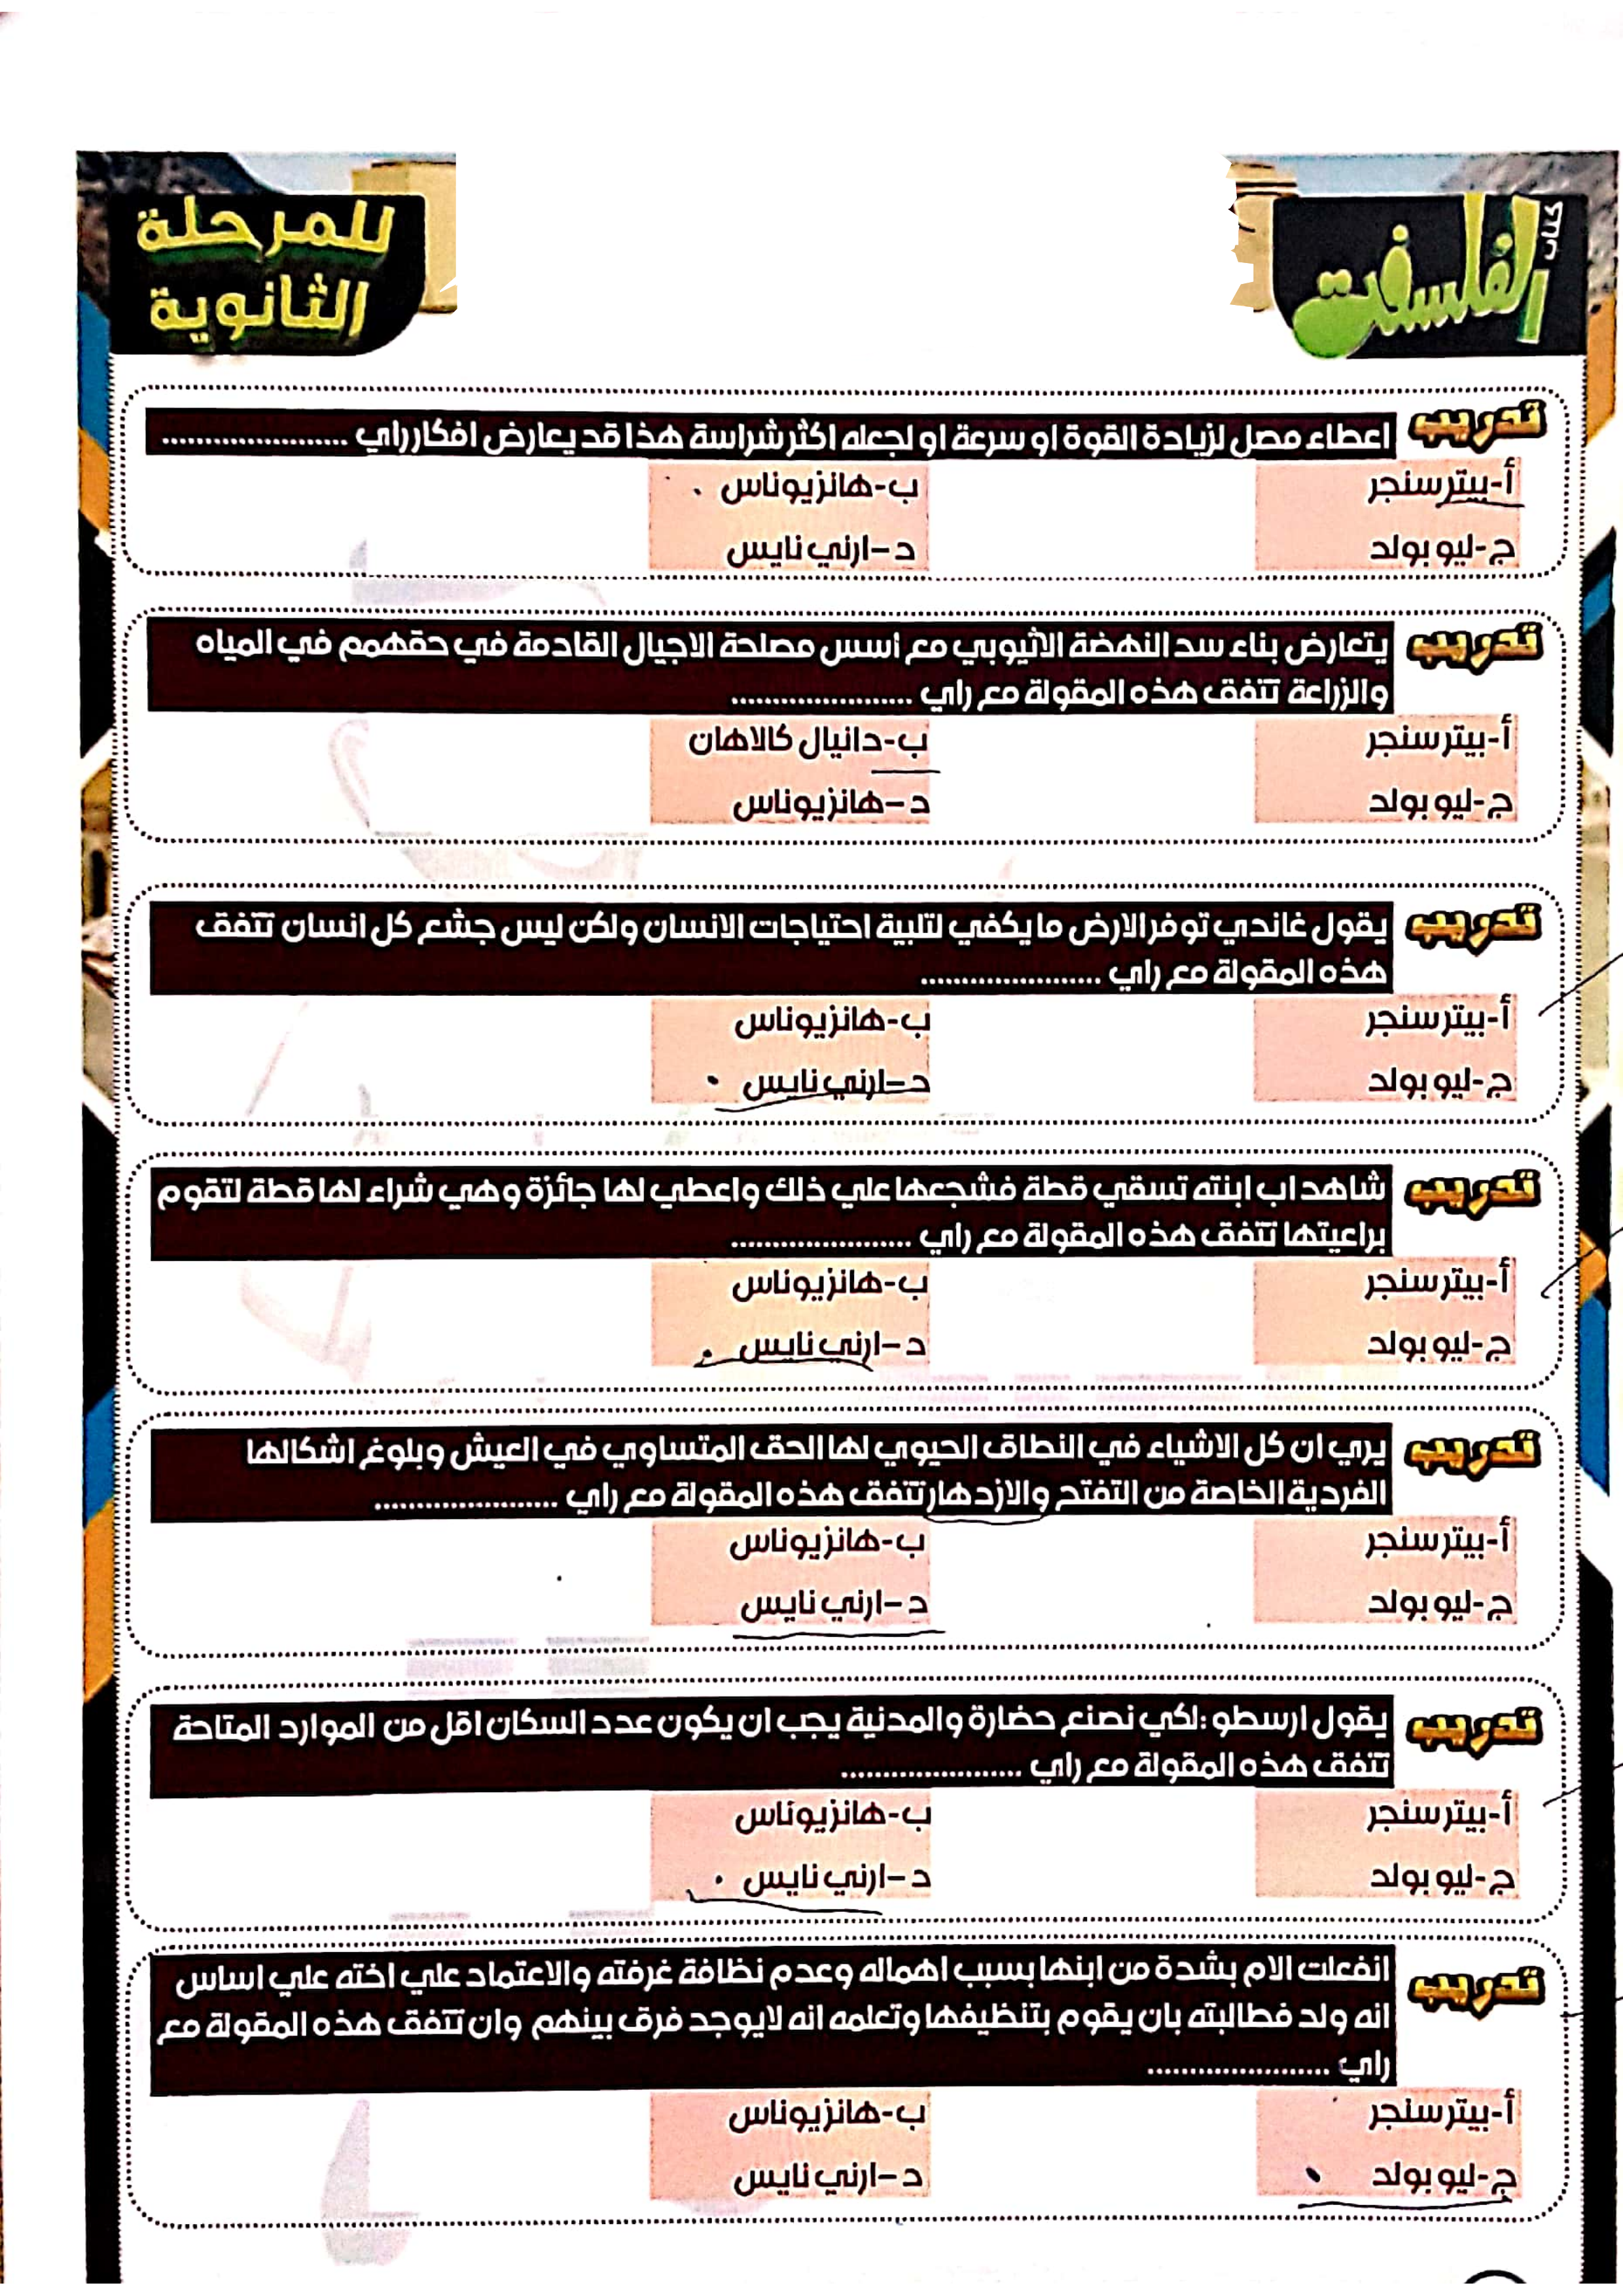 كتاب
الفلسفة
للمرحلة
الثانوية
تدريب
اعطاء مصل لزيادة القوة او سرعة او لجعله اكثر شراسة هذا قد يعارض افكار راي ......................
أ-بيتر سنجر
ب-هانزيوناس
ج-ليو بولد
د-ارني نايس
تدريب
يتعارض بناء سد النهضة الاثيوبي مع أسس مصلحة الاجيال القادمة في حقهمم في المياه
والزراعة تتفق هذه المقولة مع راي ......................
أ-بيتر سنجر
ب-دانيال كالاهان
ج-ليو بولد
د-هانزيوناس
تدريب
يقول غاندي توفر الارض ما يكفي لتلبية احتياجات الانسان ولكن ليس جشع كل انسان تتفق
هذه المقولة مع راي ......................
أ-بيتر سنجر
ب-هانزيوناس
ج-ليو بولد
د-ارني نايس
تدريب
شاهد اب ابنته تسقي قطة فشجعها علي ذلك واعطي لها جائزة وهي شراء لها قطة لتقوم
براعيتها تتفق هذه المقولة مع راي ......................
أ-بيتر سنجر
ب-هانزيوناس
ج-ليو بولد
د-ارني نايس
تدريب
يري ان كل الاشياء في النطاق الحيوي لها الحق المتساوي في العيش وبلوغ اشكالها
الفردية الخاصة من التفتح والازدهار تتفق هذه المقولة مع راي ......................
أ-بيتر سنجر
ب-هانزيوناس
ج-ليو بولد
د-ارني نايس
تدريب
يقول ارسطو :لكي نصنع حضارة والمدنية يجب ان يكون عدد السكان اقل من الموارد المتاحة
تتفق هذه المقولة مع راي ......................
أ-بيتر سنجر
ب-هانزيوناس
ج-ليو بولد
د-ارني نايس
تدريب
انفعلت الام بشدة من ابنها بسبب اهماله وعدم نظافة غرفته والاعتماد علي اخته علي اساس
انه ولد فطالبته بان يقوم بتنظيفها وتعلمه انه لايوجد فرق بينهم وان تتفق هذه المقولة مع
راي ......................
أ-بيتر سنجر
ب-هانزيوناس
ج-ليو بولد
د-ارني نايس